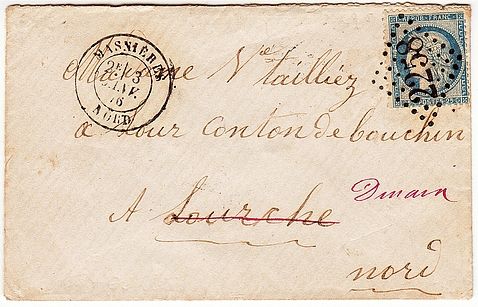 MASNIÈRES
2E
3
JANV.
76
NORD
REPUB. FRANC.
2238
Madame Vve tailliez
a Lour Conton de bouchin
A Lourche Denain
nord